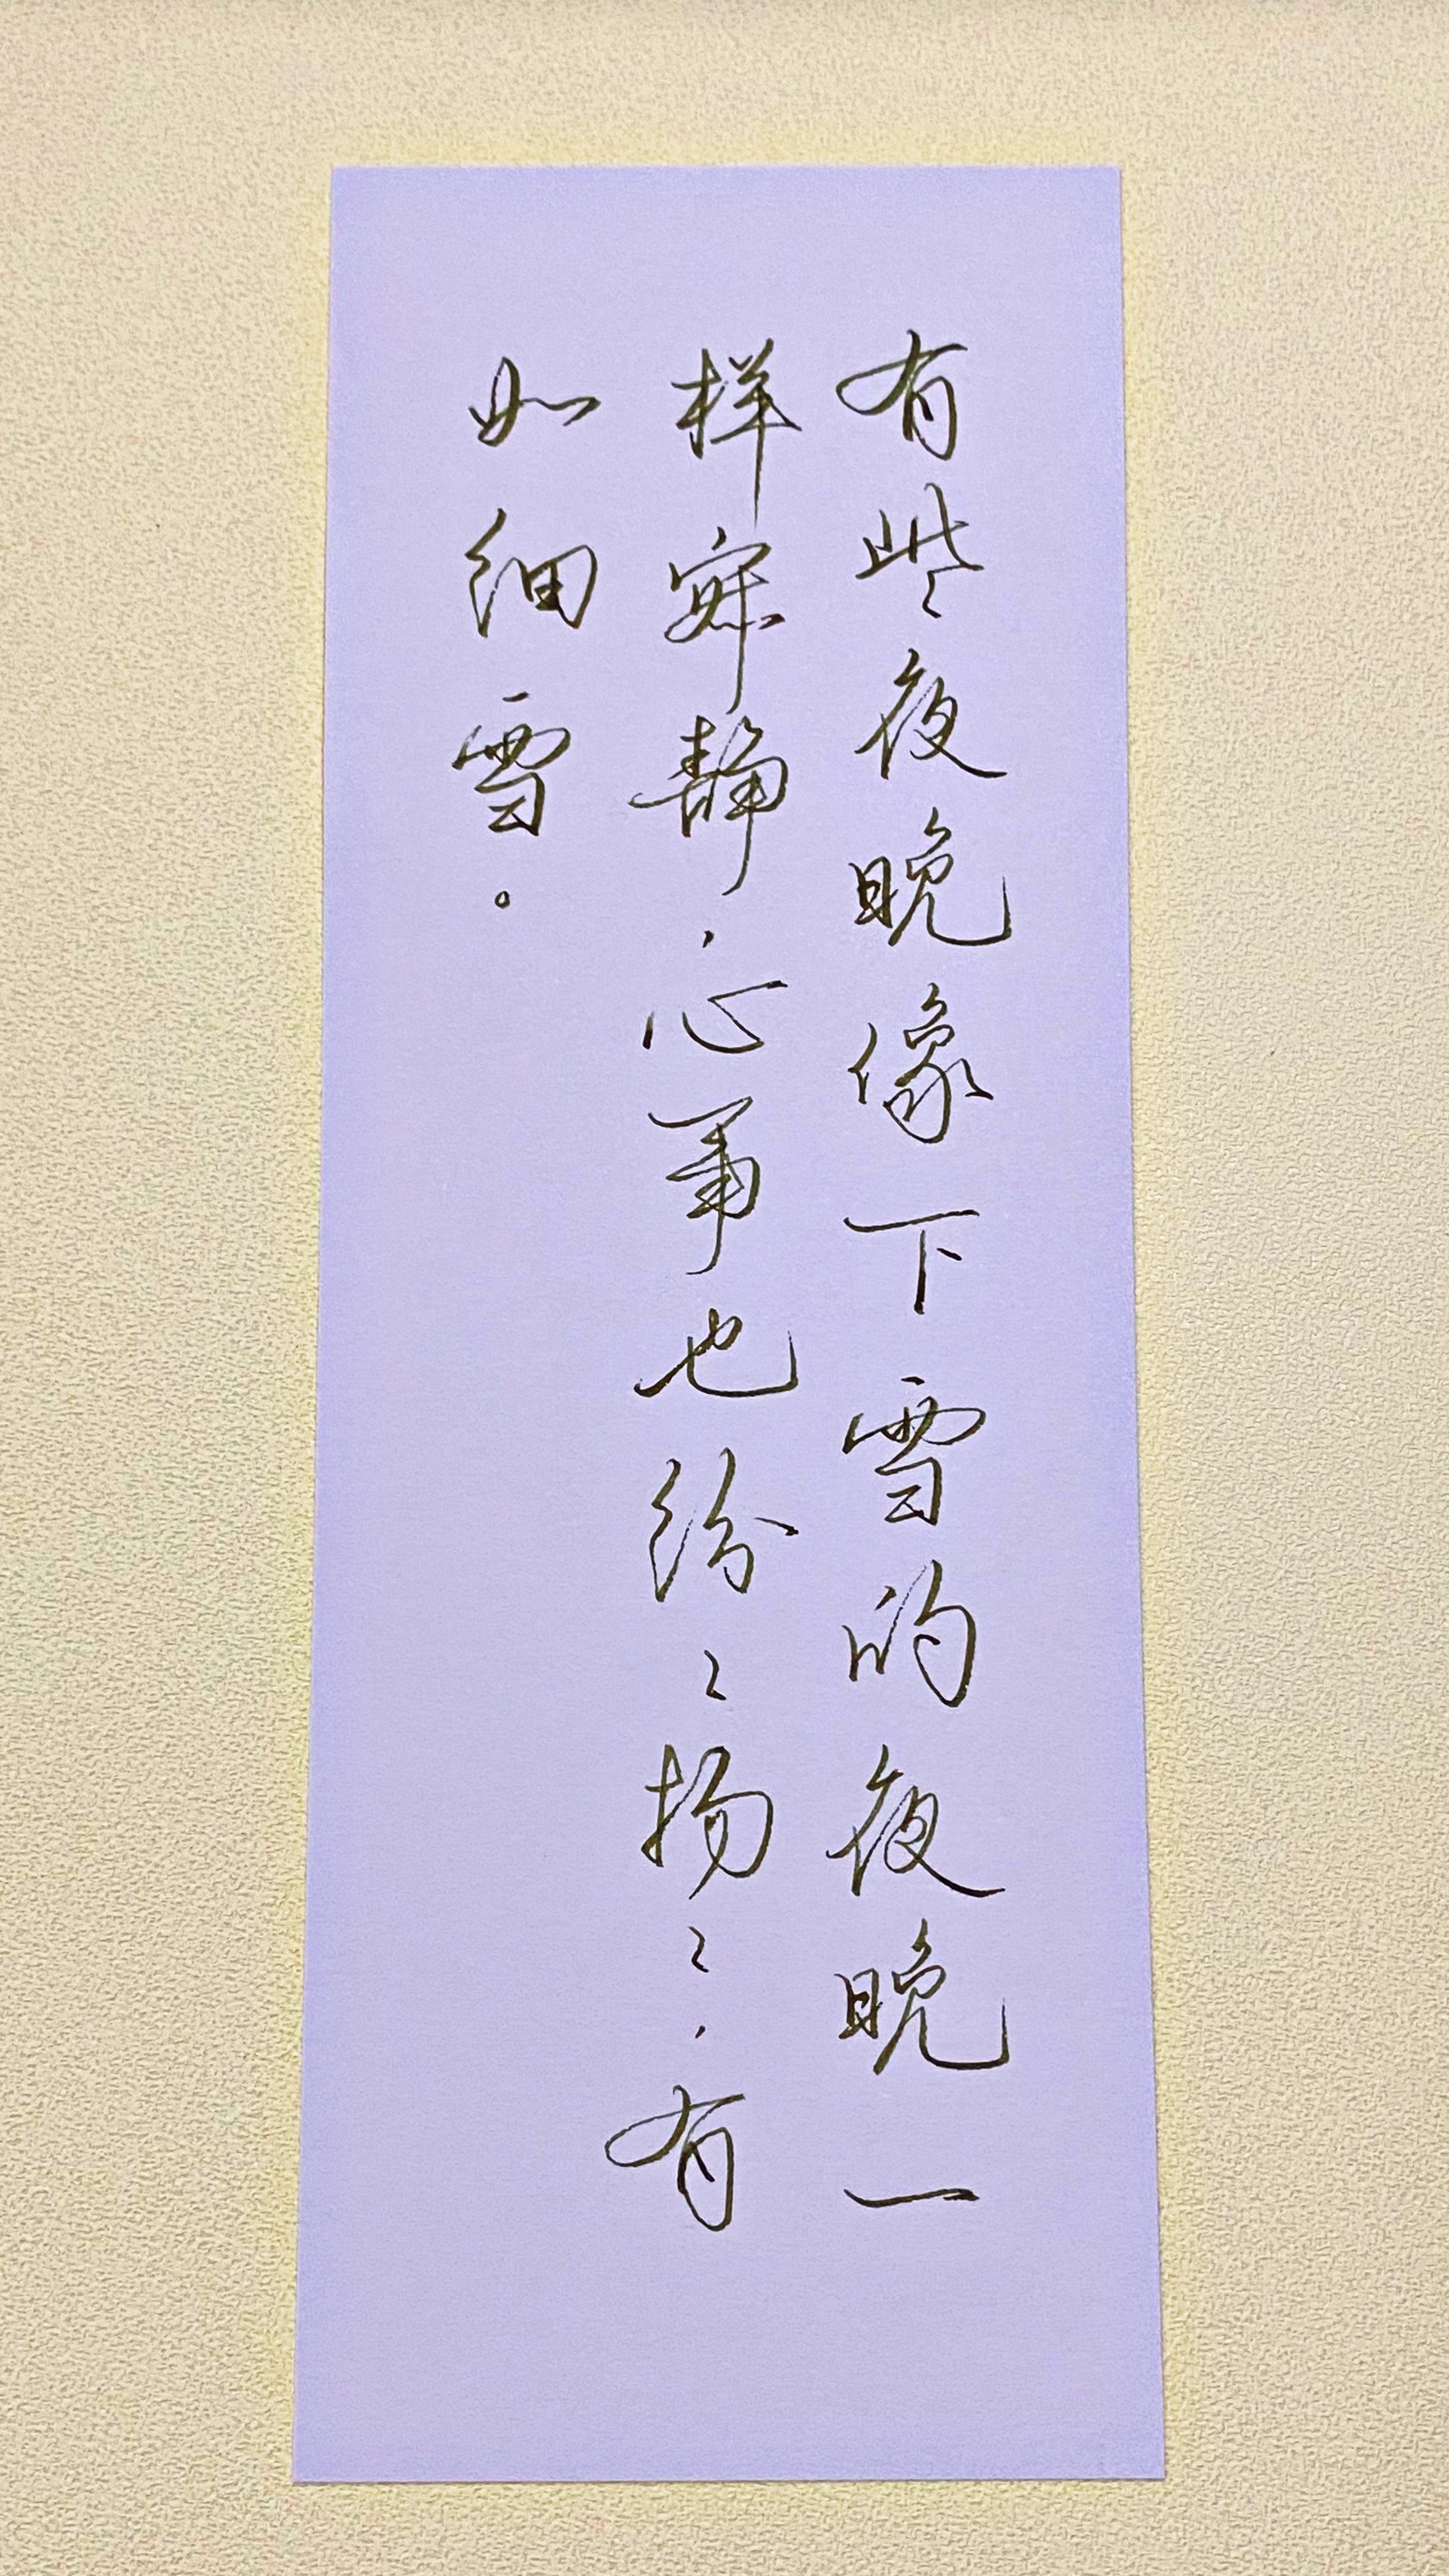 有些夜晚像下雪的夜晚一
样寂静，心事也纷々扬々，有
如细雪。